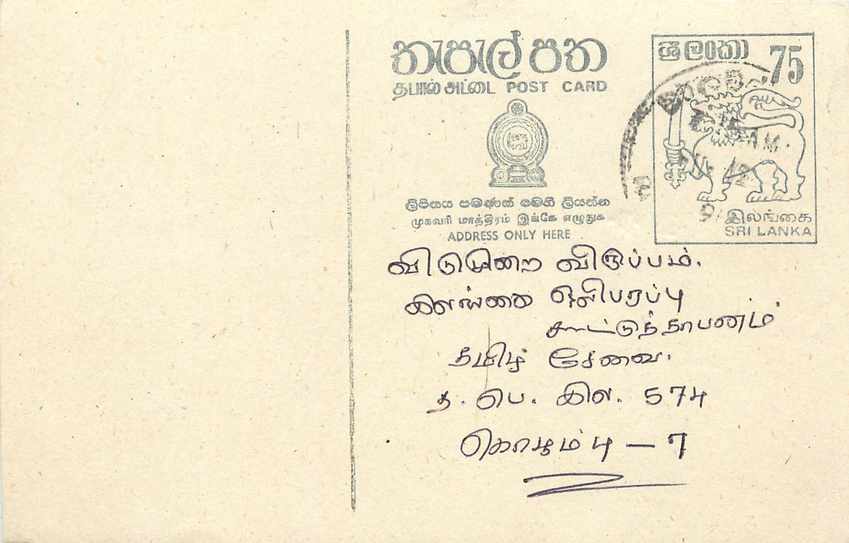 තැපැල් පත
தபால் அட்டை POST CARD
ලිපිනය පමණක් මෙහි ලියන්න
முகவரி மாத்திரம் இங்கே எழுதுக
ADDRESS ONLY HERE
ශ්‍රී ලංකා 75
இலங்கை
SRI LANKA
விடுமுறை விருப்பம்.
இலங்கை ஒலிபரப்பு
கூட்டுத்தாபனம்
தமிழ் சேவை.
த. பெ. இல. 574
கொழும்பு - 7